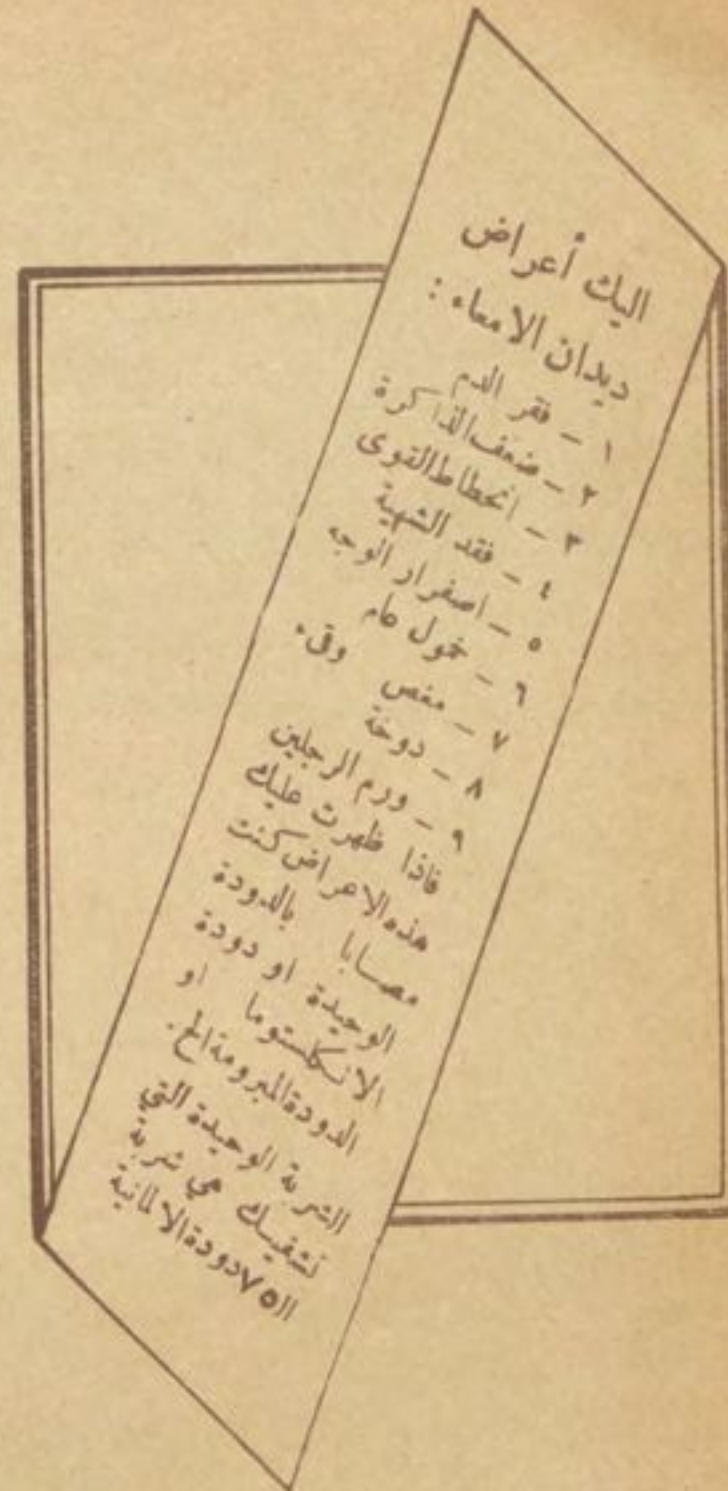 اليك أعراض
ديدان الامعاء :
١ – فقر الدم
٢ – ضعف الذاكرة
٣ – انحطاط القوى
٤ – فقد الشهية
٥ – اصفرار الوجه
٦ – خمول عام
٧ – مغص وقيء
٨ – دوخة
٩ – ورم الرجلين
فاذا ظهرت عليك
هذه الاعراض كنت
مصابا بالدودة
الوحيدة او دودة
الانكلستوما او
الدودة المبرومة الخ.
الشربة الوحيدة التي
تشفيك هي شربة
الـ ٧٥ دودة الالمانية